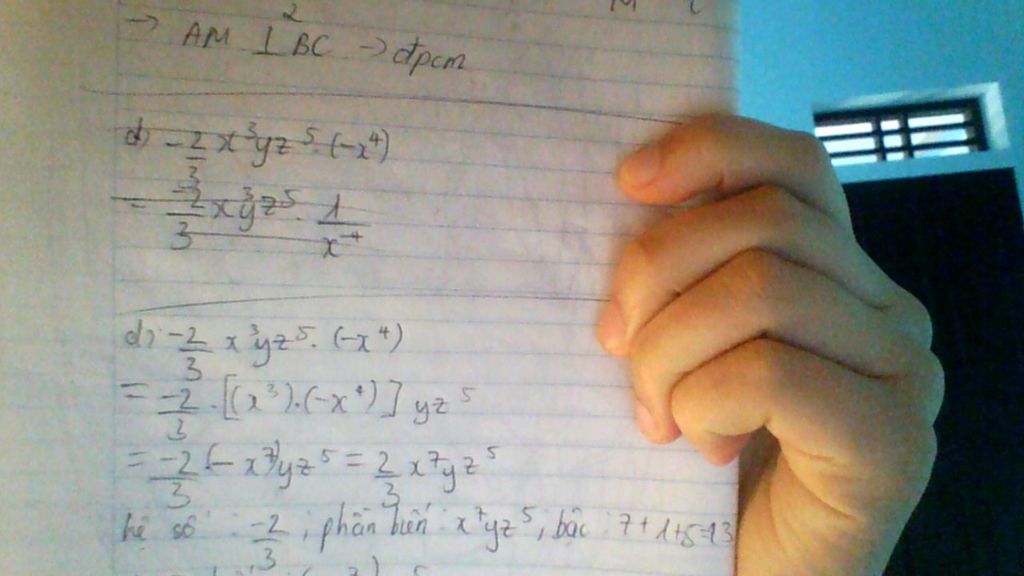 → AM ⊥ BC → đpcm
d) -2/3 x³yz⁵. (-x⁴)
= -2/3 x³yz⁵. 1/x⁻⁴
d) -2/3 x³yz⁵. (-x⁴)
= -2/3 .[(x³).(-x⁴)] yz⁵
= -2/3 (-x⁷)yz⁵ = 2/3 x⁷yz⁵
hệ số : -2/3 ; phần biến : x⁷yz⁵, bậc : 7+1+5=13